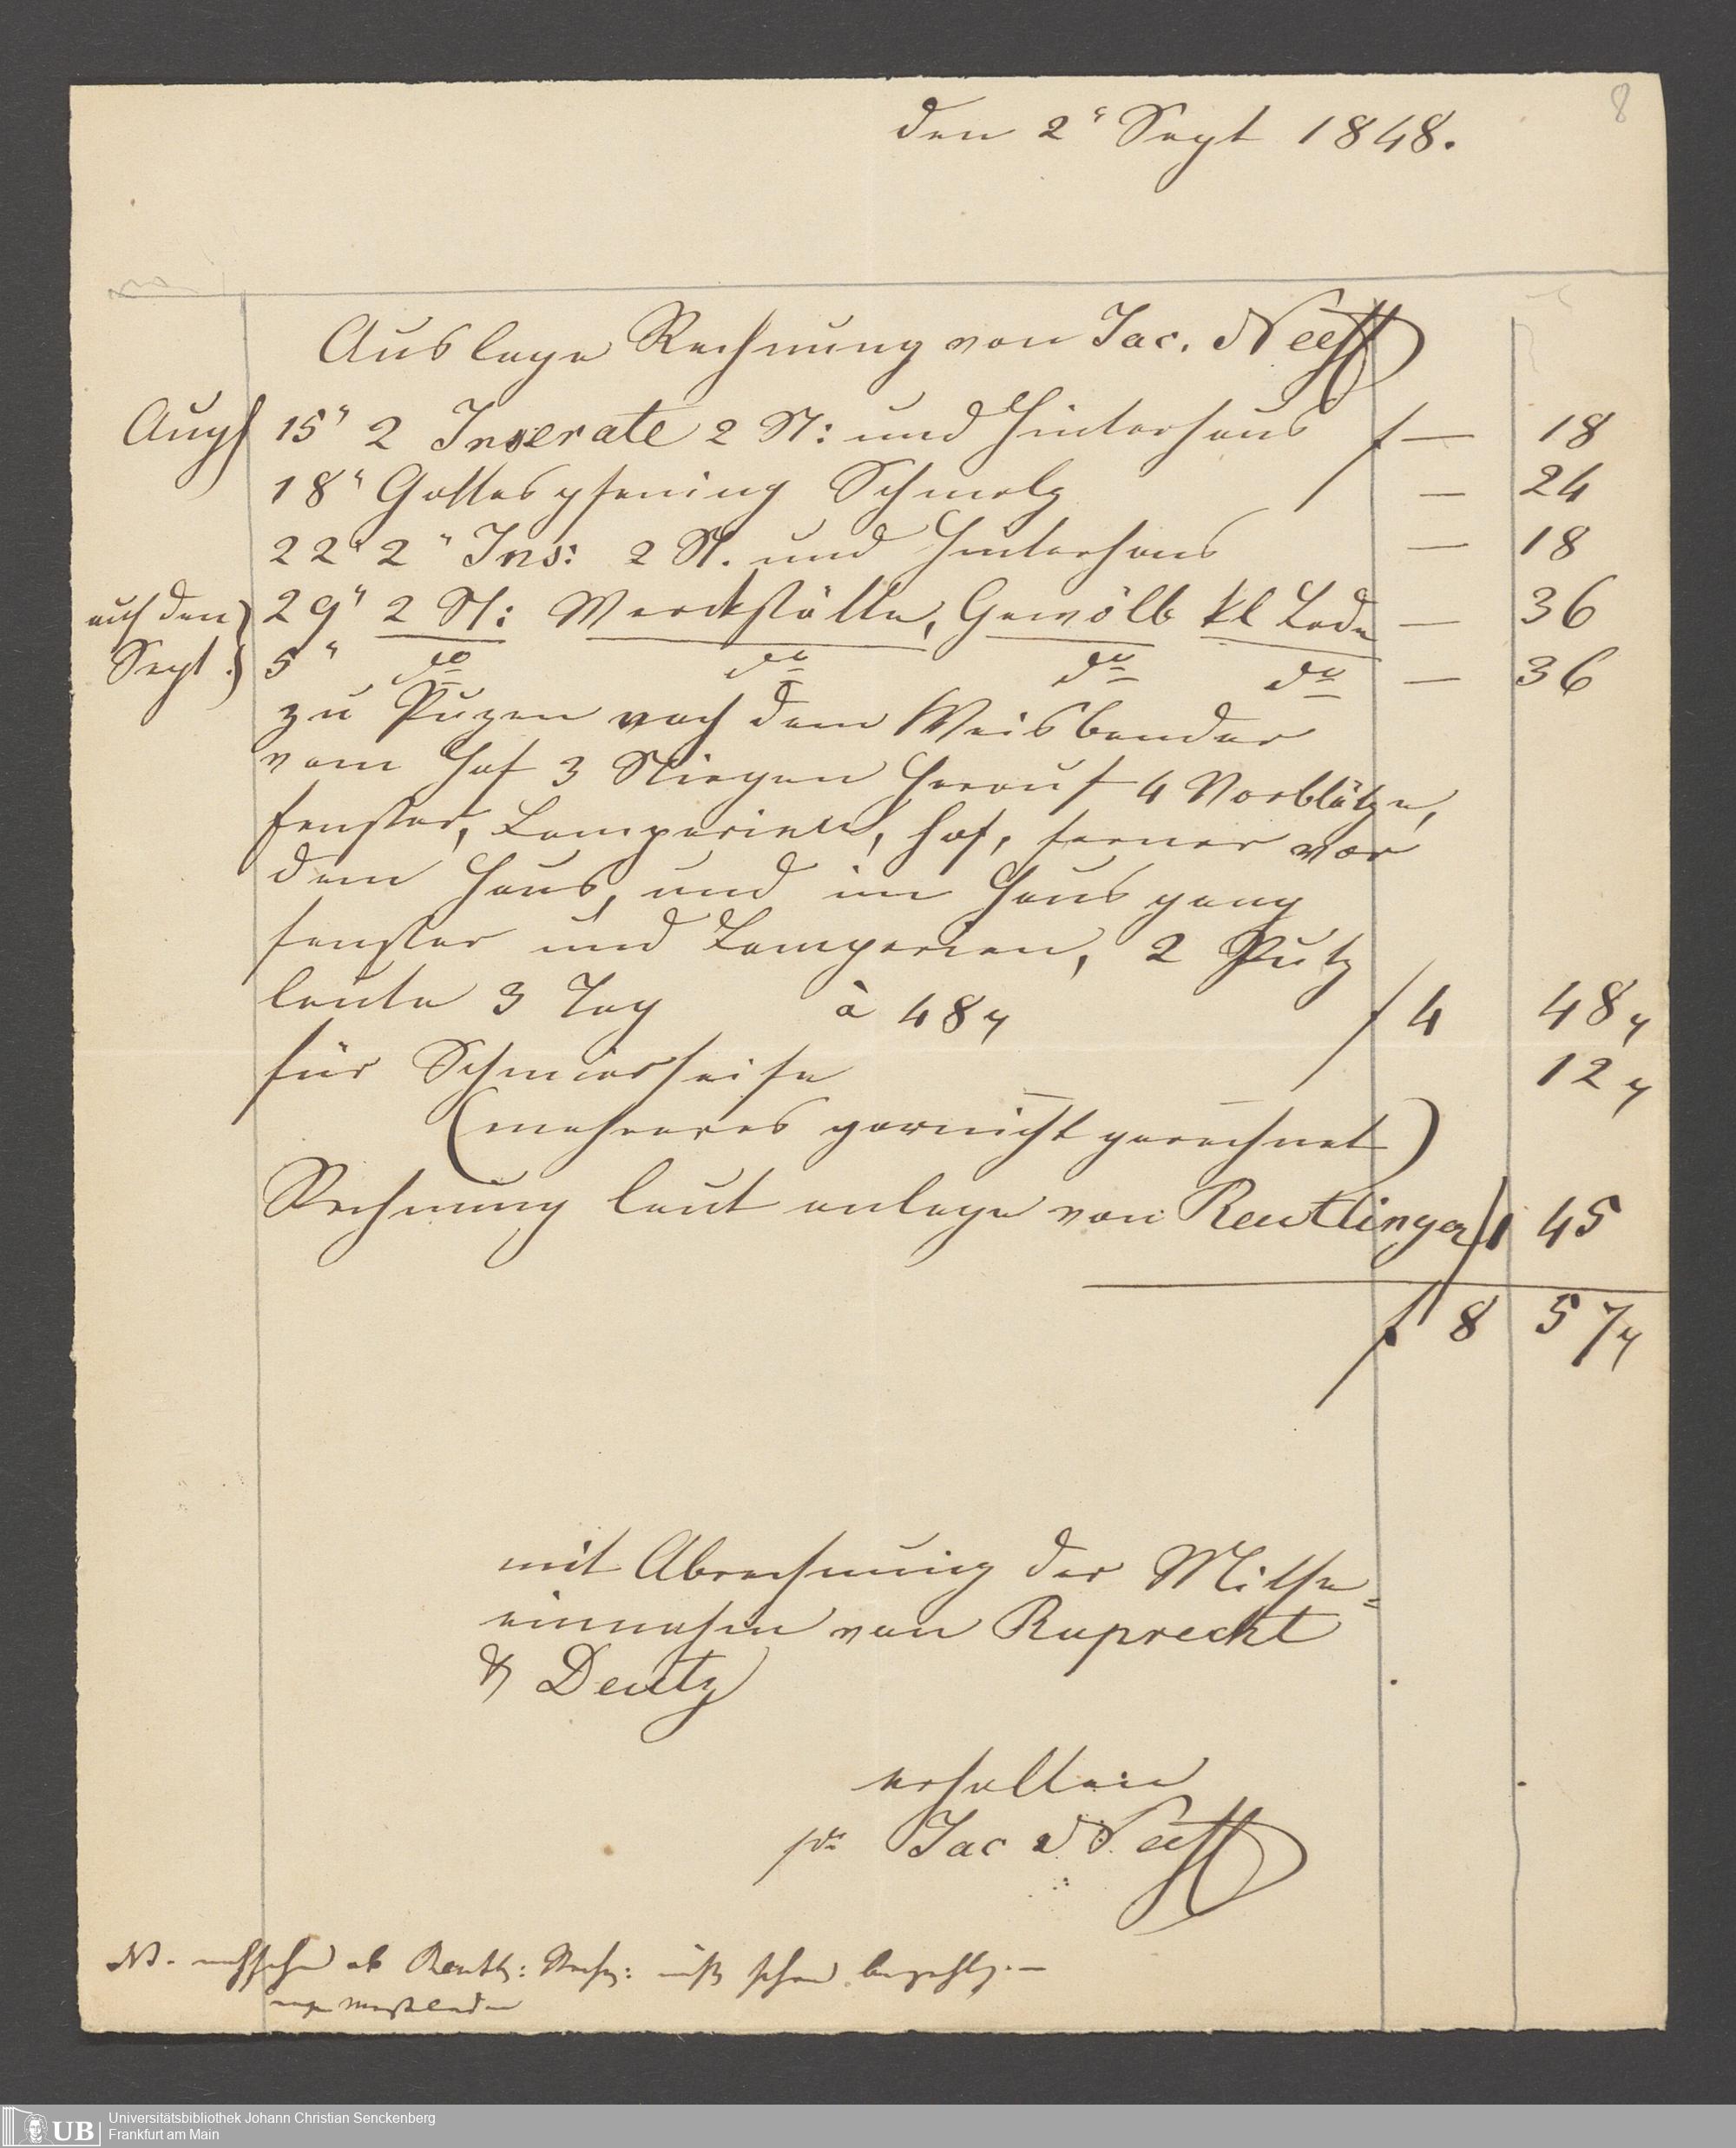 8
den 2" Sept 1848.
Auslage Rechnung von Jac. Neeff
Augst 15" 2 Inserate 2 St: und Hinterhaus f — 18
18" Gottespfening Schmelz — 24
22" 2" Ins: 2 St. und Hinterhaus — 18
auf den 29" 2 St: Werckstätte, Gewölb kl Lade — 36
Sept. 5" do do do do — 36
zu Puzen nach dem Weisbender
vom Hof 3 Stiegen herauf 4 Vorblätze,
fenster, Lamperien, hof, ferner vor
dem Haus, und im Hausgang
fenster und Lamperien, 2 Putz
leute 3 Tag à 48 f 4 48
für Schmierseife 12
(mehreres garnicht gerechnet)
Rechnung laut anlage von Reutlinger f 1 45
f 8 57
mit Abrechnung der Mithe=
einnahm von Ruprecht
& Deutz
erhalten
Jac Neeff
NB. ob Reutl: Rechg: nicht schon bezahlt. —
Universitätsbibliothek Johann Christian Senckenberg
Frankfurt am Main
UB